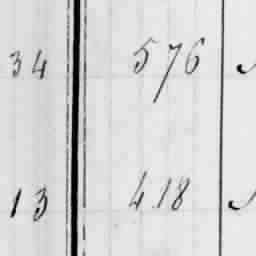 34 576
13 418